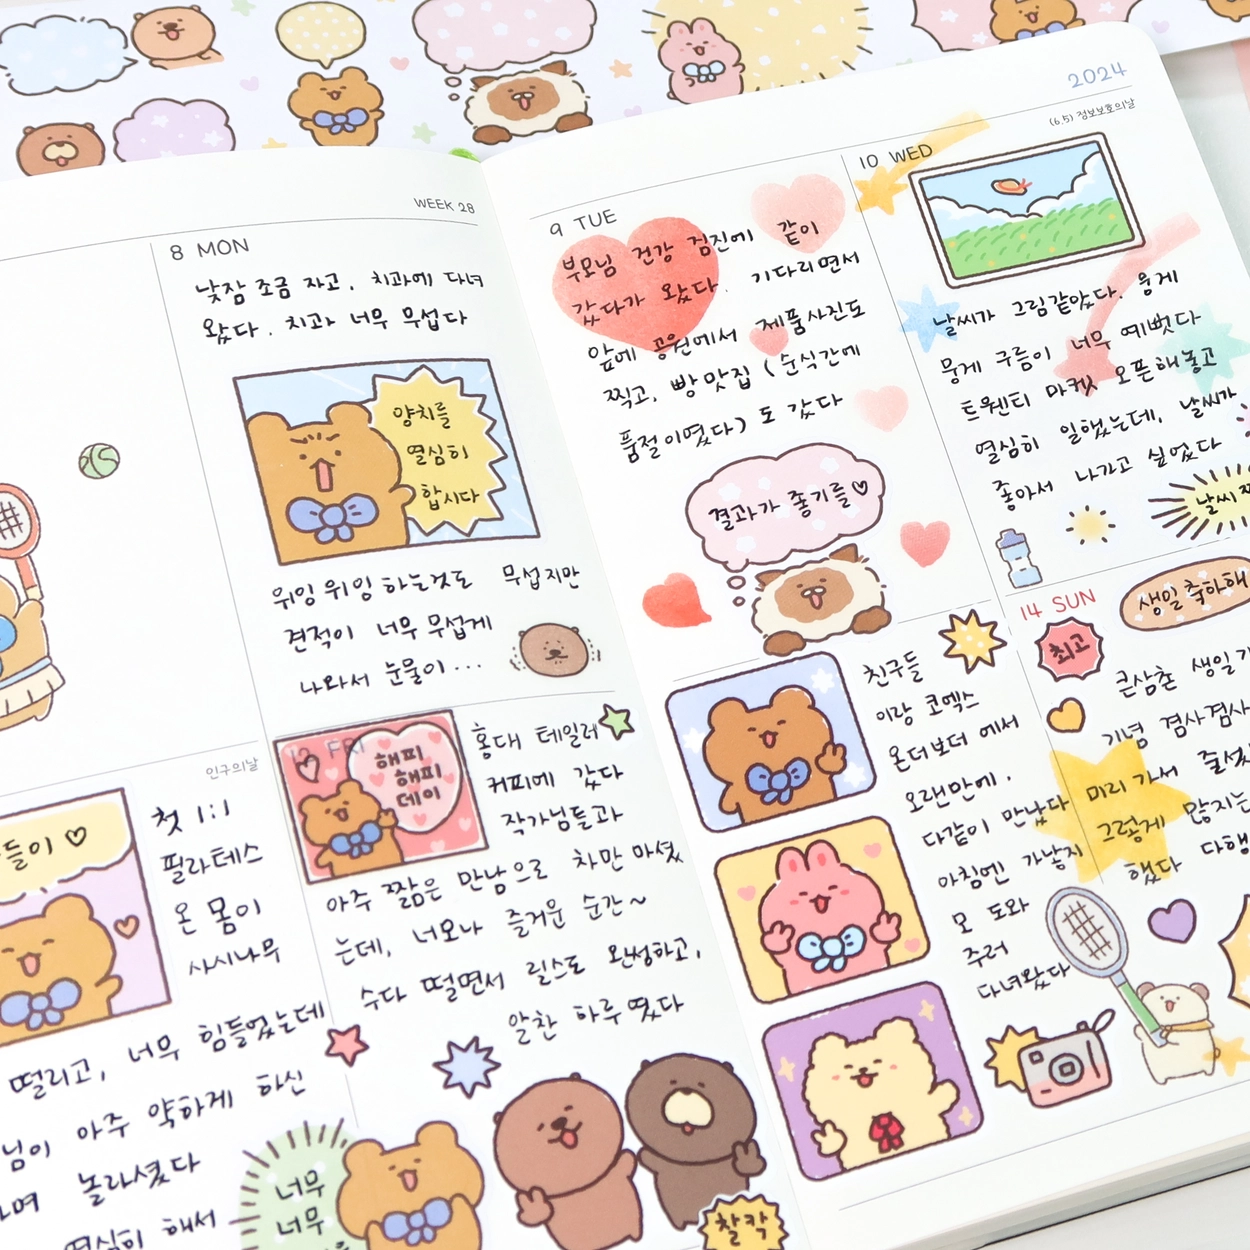 WEEK 28
8 MON
낮잠 조금 자고, 치과에 다녀
왔다. 치과 너무 무섭다
양치를
열심히
합시다
위잉 위잉 하는것도 무섭지만
견적이 너무 무섭게
나와서 눈물이...
인구의날
들이 ♡
첫 1:1
필라테스
온 몸이
사시나무
떨리고, 너무 힘들었는데
님이 아주 약하게 하신
놀라셨다
열심히 해서
너무
너무
12 FRI
해피
해피
데이
홍대 테일러
커피에 갔다
작가님들과
아주 짧은 만남으로 차만 마셨
는데, 너모나 즐거운 순간~
수다 떨면서 릴스도 완성하고,
알찬 하루였다
찰칵
2024
(6.5) 정보보호의날
9 TUE
부모님 건강 검진에 같이
갔다가 왔다. 기다리면서
앞에 공원에서 제품사진도
찍고, 빵 맛집 (순식간에
품절이였다)도 갔다
결과가 좋기를♡
친구들
이랑 코엑스
온더보더 에서
오랜만에.
다같이 만났다
아침엔 가낳지
모 도와
주러
다녀왔다
10 WED
날씨가 그림같았다. 뭉게
뭉게 구름이 너무 예뻤다
트웬티 마켓 오픈해놓고
열심히 일했는데, 날씨가
좋아서 나가고 싶었다
날씨
14 SUN
생일 축하해
최고
큰삼촌 생일
기념 겸사겸사
미리 가서
그렇게 많지는
했다 다행